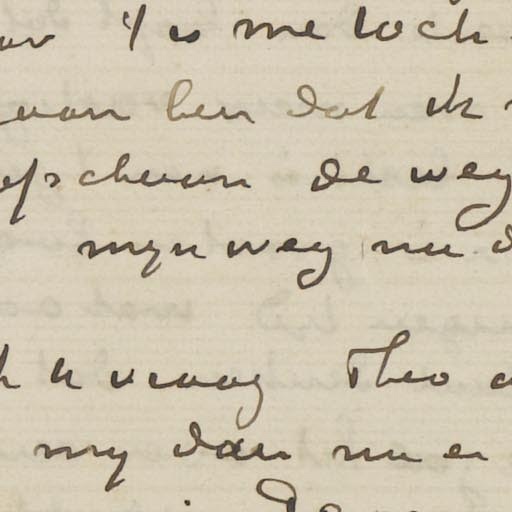 't is me toch
van ben dat ik
afschuun de weg
myn weg nu d
k u vraag Theo
my dan nu en